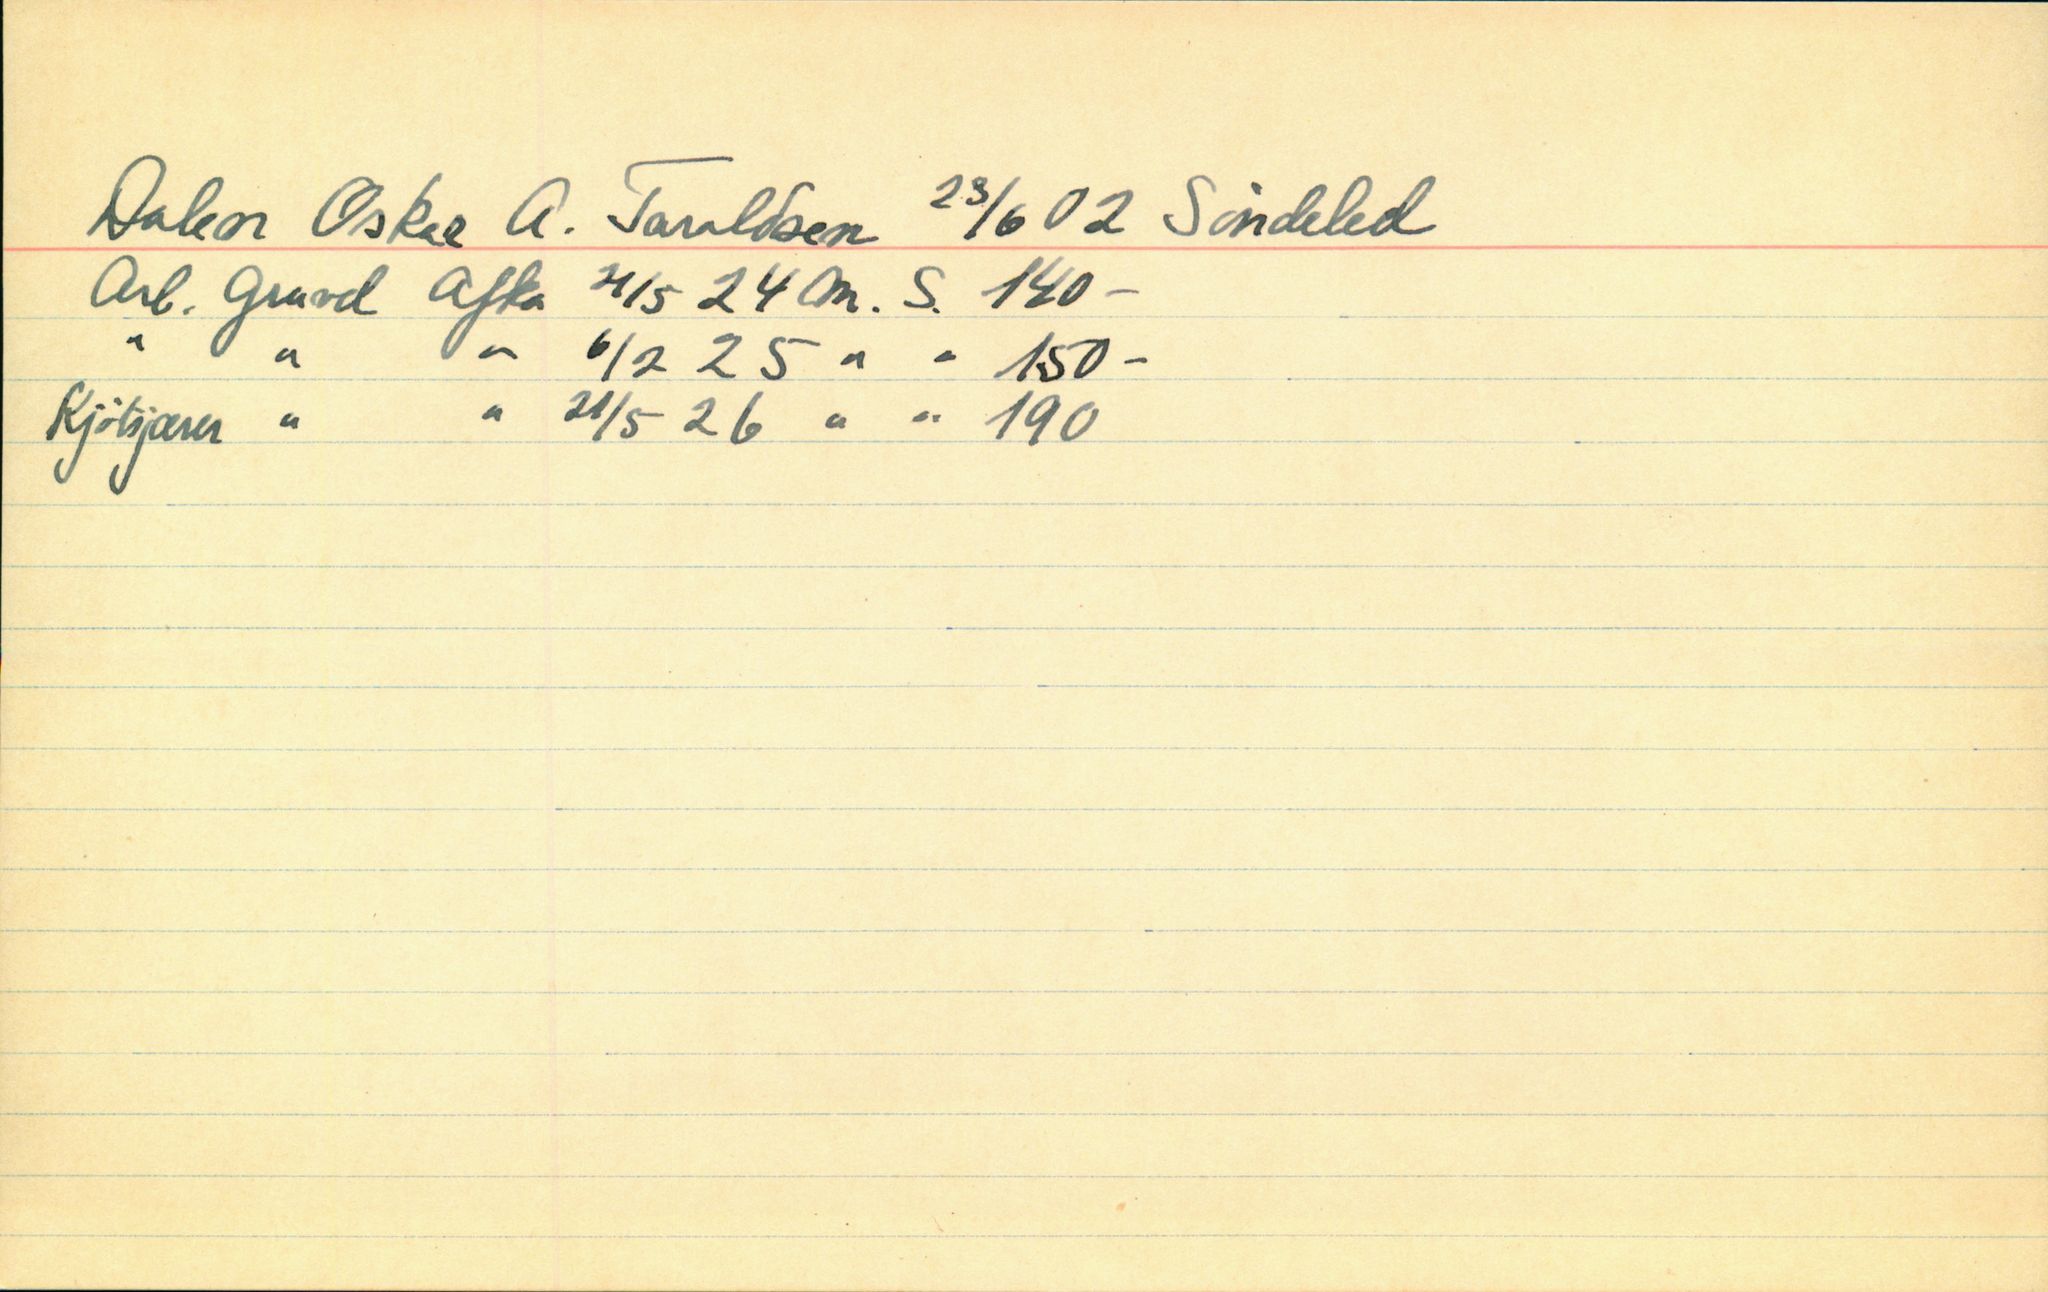 Dalen Oskar A. Taraldsen 23/6 02 Söndeled
Arb. Gruvd Afka 21/5 24 M. S. 140-
" " " 6/2 25 " " 150-
Kjötsjærer " " 21/5 26 " " 190